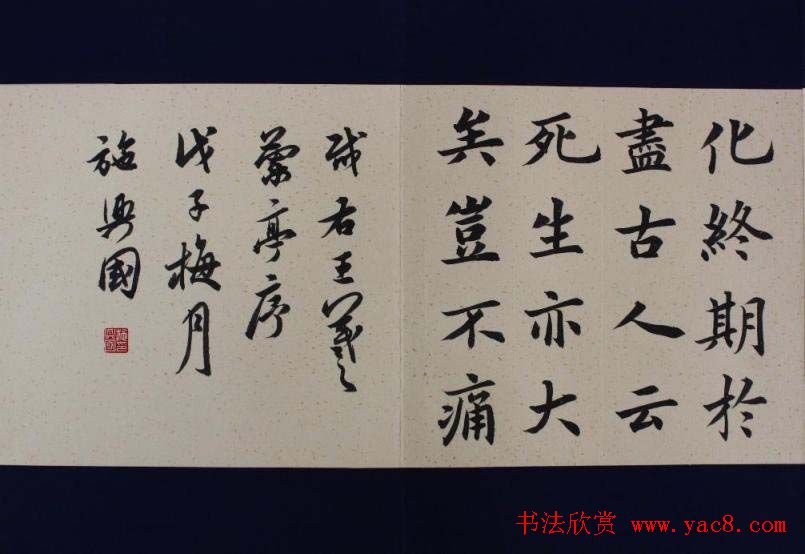 化終期於
盡古人云
死生亦大
矣豈不痛
右王羲之
蘭亭序
戊子梅月
施興國
书法欣赏 www.yac8.com